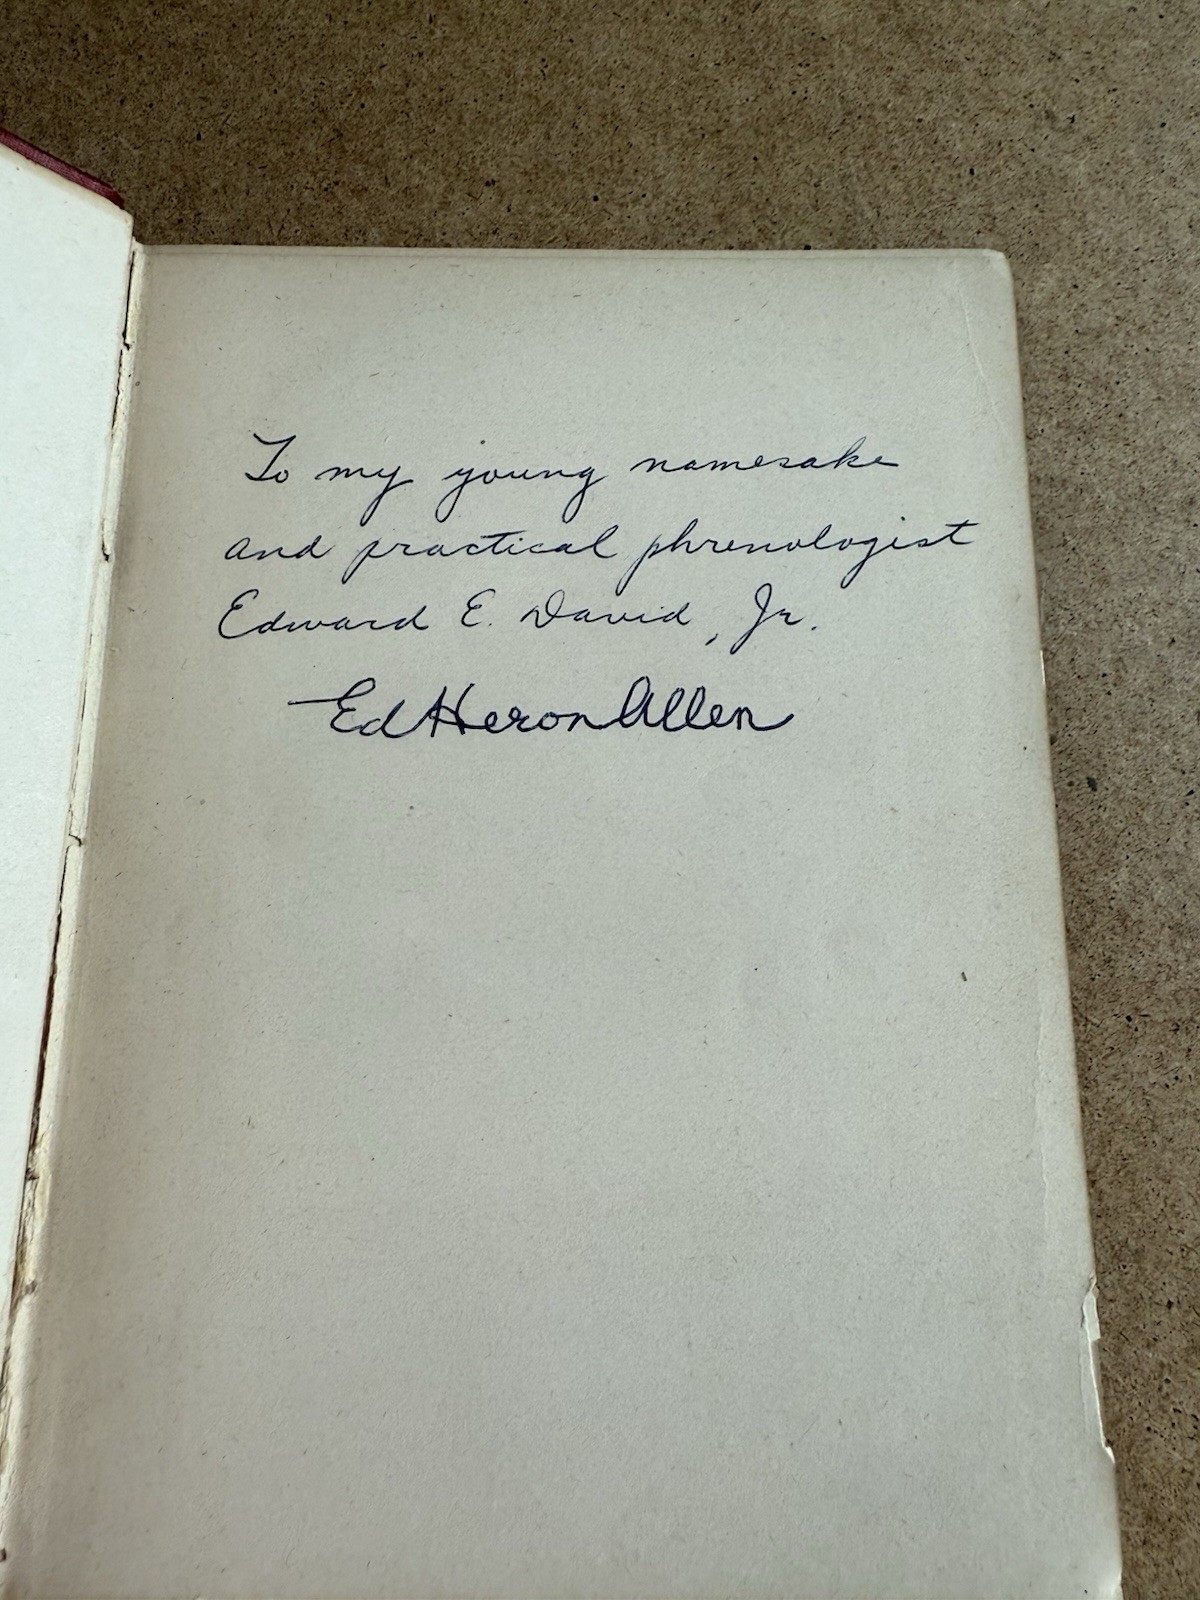 To my young namesake
and practical phrenologist
Edward E. David, Jr.
Ed Heron Allen